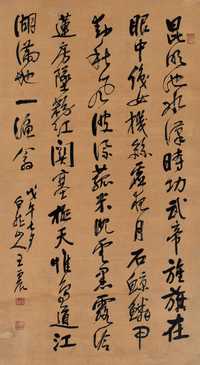 昆明池水漢時功武帝旌旗在
眼中織女機絲虛夜月石鯨鱗甲
動秋風波漂菰米沉雲黑露冷
蓮房墜粉紅關塞極天惟鳥道江
湖滿地一漁翁
戊午七夕
白龍山人王震